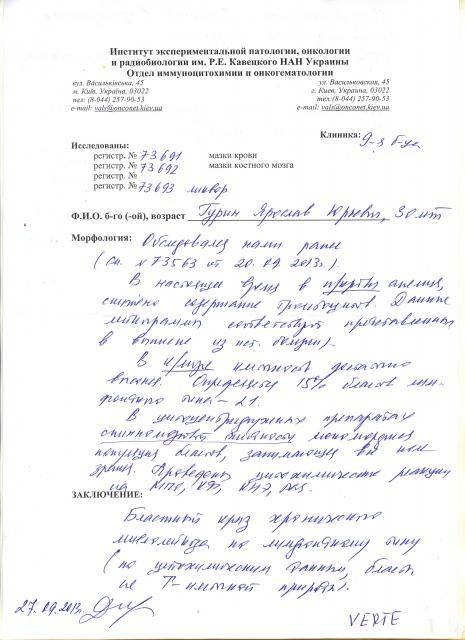 Институт экспериментальной патологии, онкологии
и радиобиологии им. Р.Е. Кавецкого НАН Украины
Отдел иммуноцитохимии и онкогематологии
вул. Васильківська, 45
м. Київ, Україна, 03022
тел: (8-044) 257-90-53
e-mail: vals@onconet.kiev.ua
ул. Васильковская, 45
г. Киев, Украина, 03022
тел:(8-044) 257-90-53
e-mail: vals@onconet.kiev.ua
Клиника: 9-я б-ца
Исследованы:
регистр. № 73691 мазки крови
регистр. № 73692 мазки костного мозга
регистр. №
регистр. № 73693 ликвор
Ф.И.О. б-го (-ой), возраст Гурин Ярослав Юрьевич, 30 лет
Морфология: Обследовался нами ранее
(см. № 73563 от 20.09.2013г.).
В настоящее время в
снижено содержание тромбоцитов. Данные
соответствуют представленным
в выписке из ист. болезни).
В клеточность
Определяется 15% бластов
В цитоцентрифужных препаратах
спинномозговой жидкости мономорфная
популяция бластов, занимающая все поле
зрения. Проведены цитохимические реакции
на МПО, КФ,
ЗАКЛЮЧЕНИЕ:
Бластный криз хронического
миелолейкоза по лимфоидному типу
(по цитохимическим данным, бласты
не Т-клеточной природы).
27.09.2013г.
VERTE